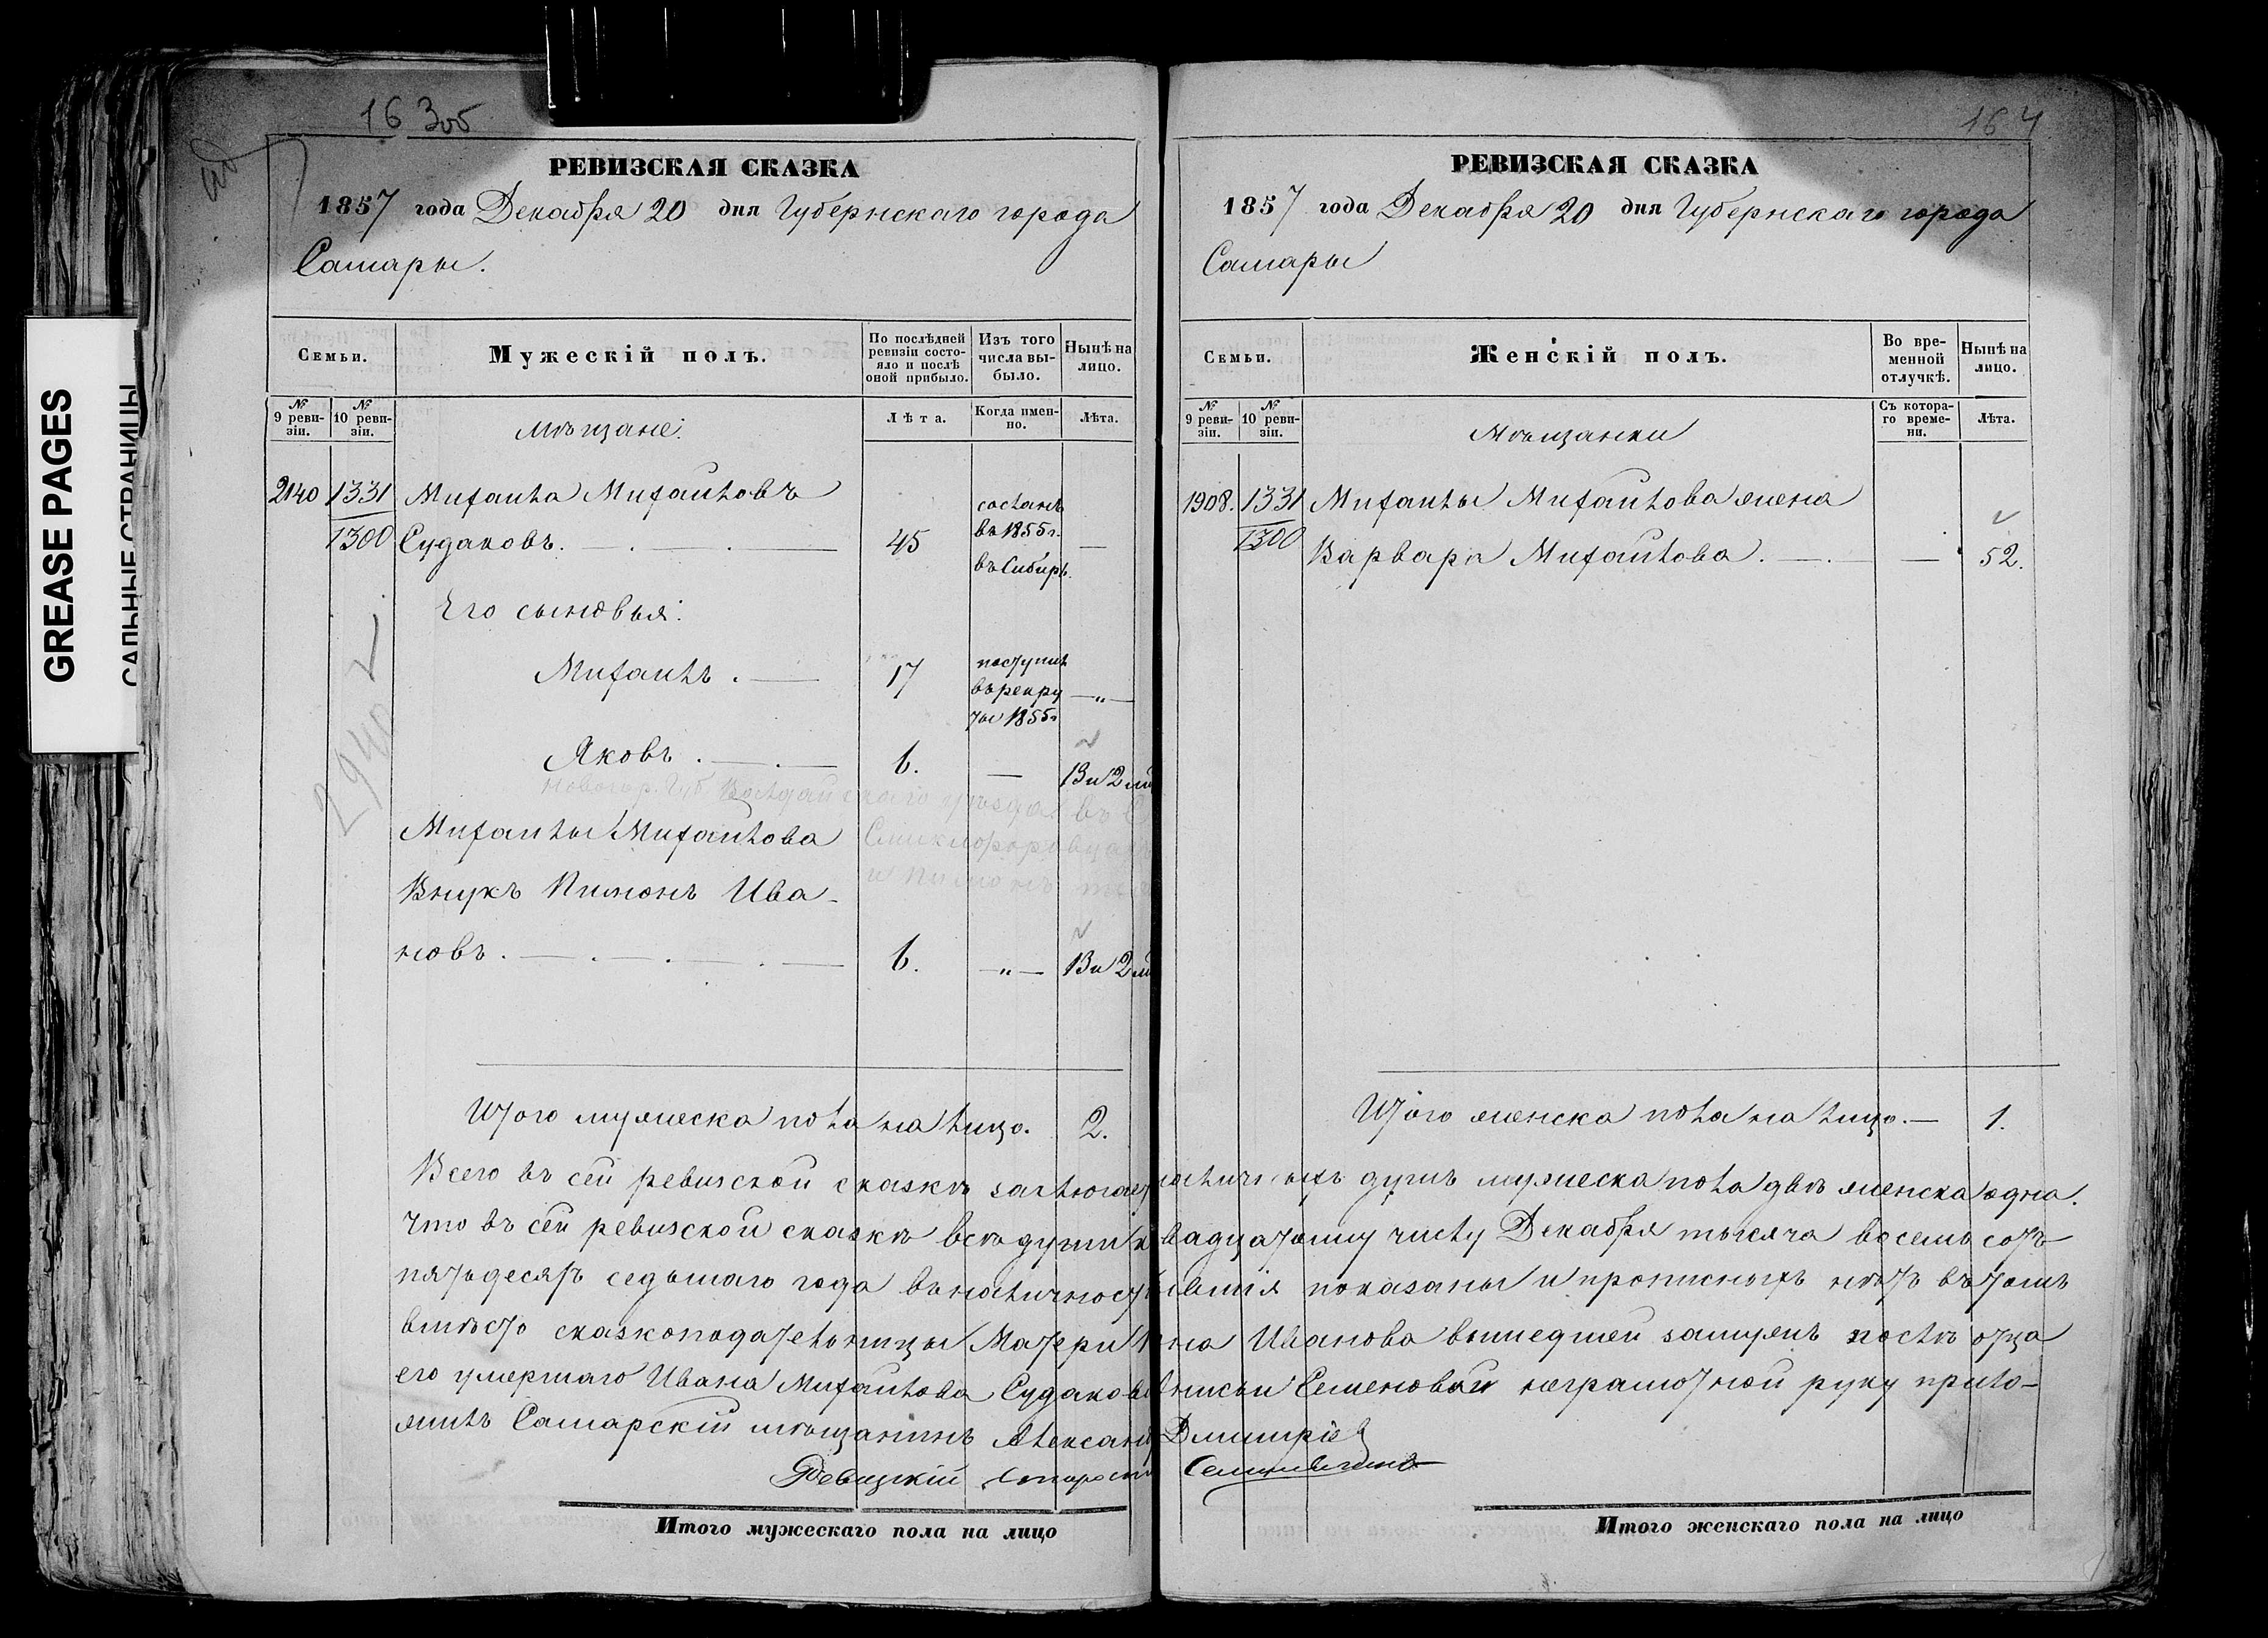 GREASE PAGES
САЛЬНЫЕ СТРАНИЦЫ
163об
РЕВИЗСКАЯ СКАЗКА
1857 года Декабря 20 дня Губернскаго города
Самары.
Семьи.
Мужескій полъ.
По послѣдней ревизіи состояло и послѣ оной прибыло.
Изъ того числа выбыло.
Нынѣ на лицо.
№ 9 ревизіи.
№ 10 ревизіи.
Мѣщане:
Лѣта.
Когда именно.
Лѣта.
2140 1331 Михаила Михайловъ
1300 Судаковъ. 45 сосланъ въ 1855 г. въ Сибирь. —
Его сыновья:
Михаилъ. 17 поступилъ въ рекруты 1855 г —„—
Яковъ. 6. — 13 и 2 м
Новогор. Губ. Валдайскаго уѣзда въ
Михаилы Михайлова
Внукъ Пимонъ Ива-
новъ. 6. —„— 13 и 2 м
2940
Итого мужеска пола на лицо. 2.
Всего въ сей ревиской сказкѣ заключает
что въ сей ревиской сказкѣ всѣ души к
пятьдесятъ седьмаго года въ наличност
вмѣсто сказкоподательницы Матери
его умершаго Ивана Михайлова Судаков
жилъ Самарскій мѣщанинъ Александ
Ревизскій Старост
Итого мужескаго пола на лицо
164
РЕВИЗСКАЯ СКАЗКА
1857 года Декабря 20 дня Губернскаго города
Самары
Семьи.
Женскій полъ.
Во временной отлучкѣ.
Нынѣ на лицо.
№ 9 ревизіи.
№ 10 ревизіи.
Мѣщанки
Съ котораго времени.
Лѣта.
1908. 1331 Михаилы Михайлова жена
1300 Варвара Михайлова. — 52.
Итого женска пола на лицо. — 1.
наличныхъ душъ мужеска пола двѣ женска одна.
вадцатому числу Декабря тысяча восемь сотъ
бывшія показаны и прописныхъ нѣтъ въ томъ
Иванова вышедшей замужъ послѣ отца
Семеновой неграмотной руку прило-
Дмитріев
Итого женскаго пола на лицо